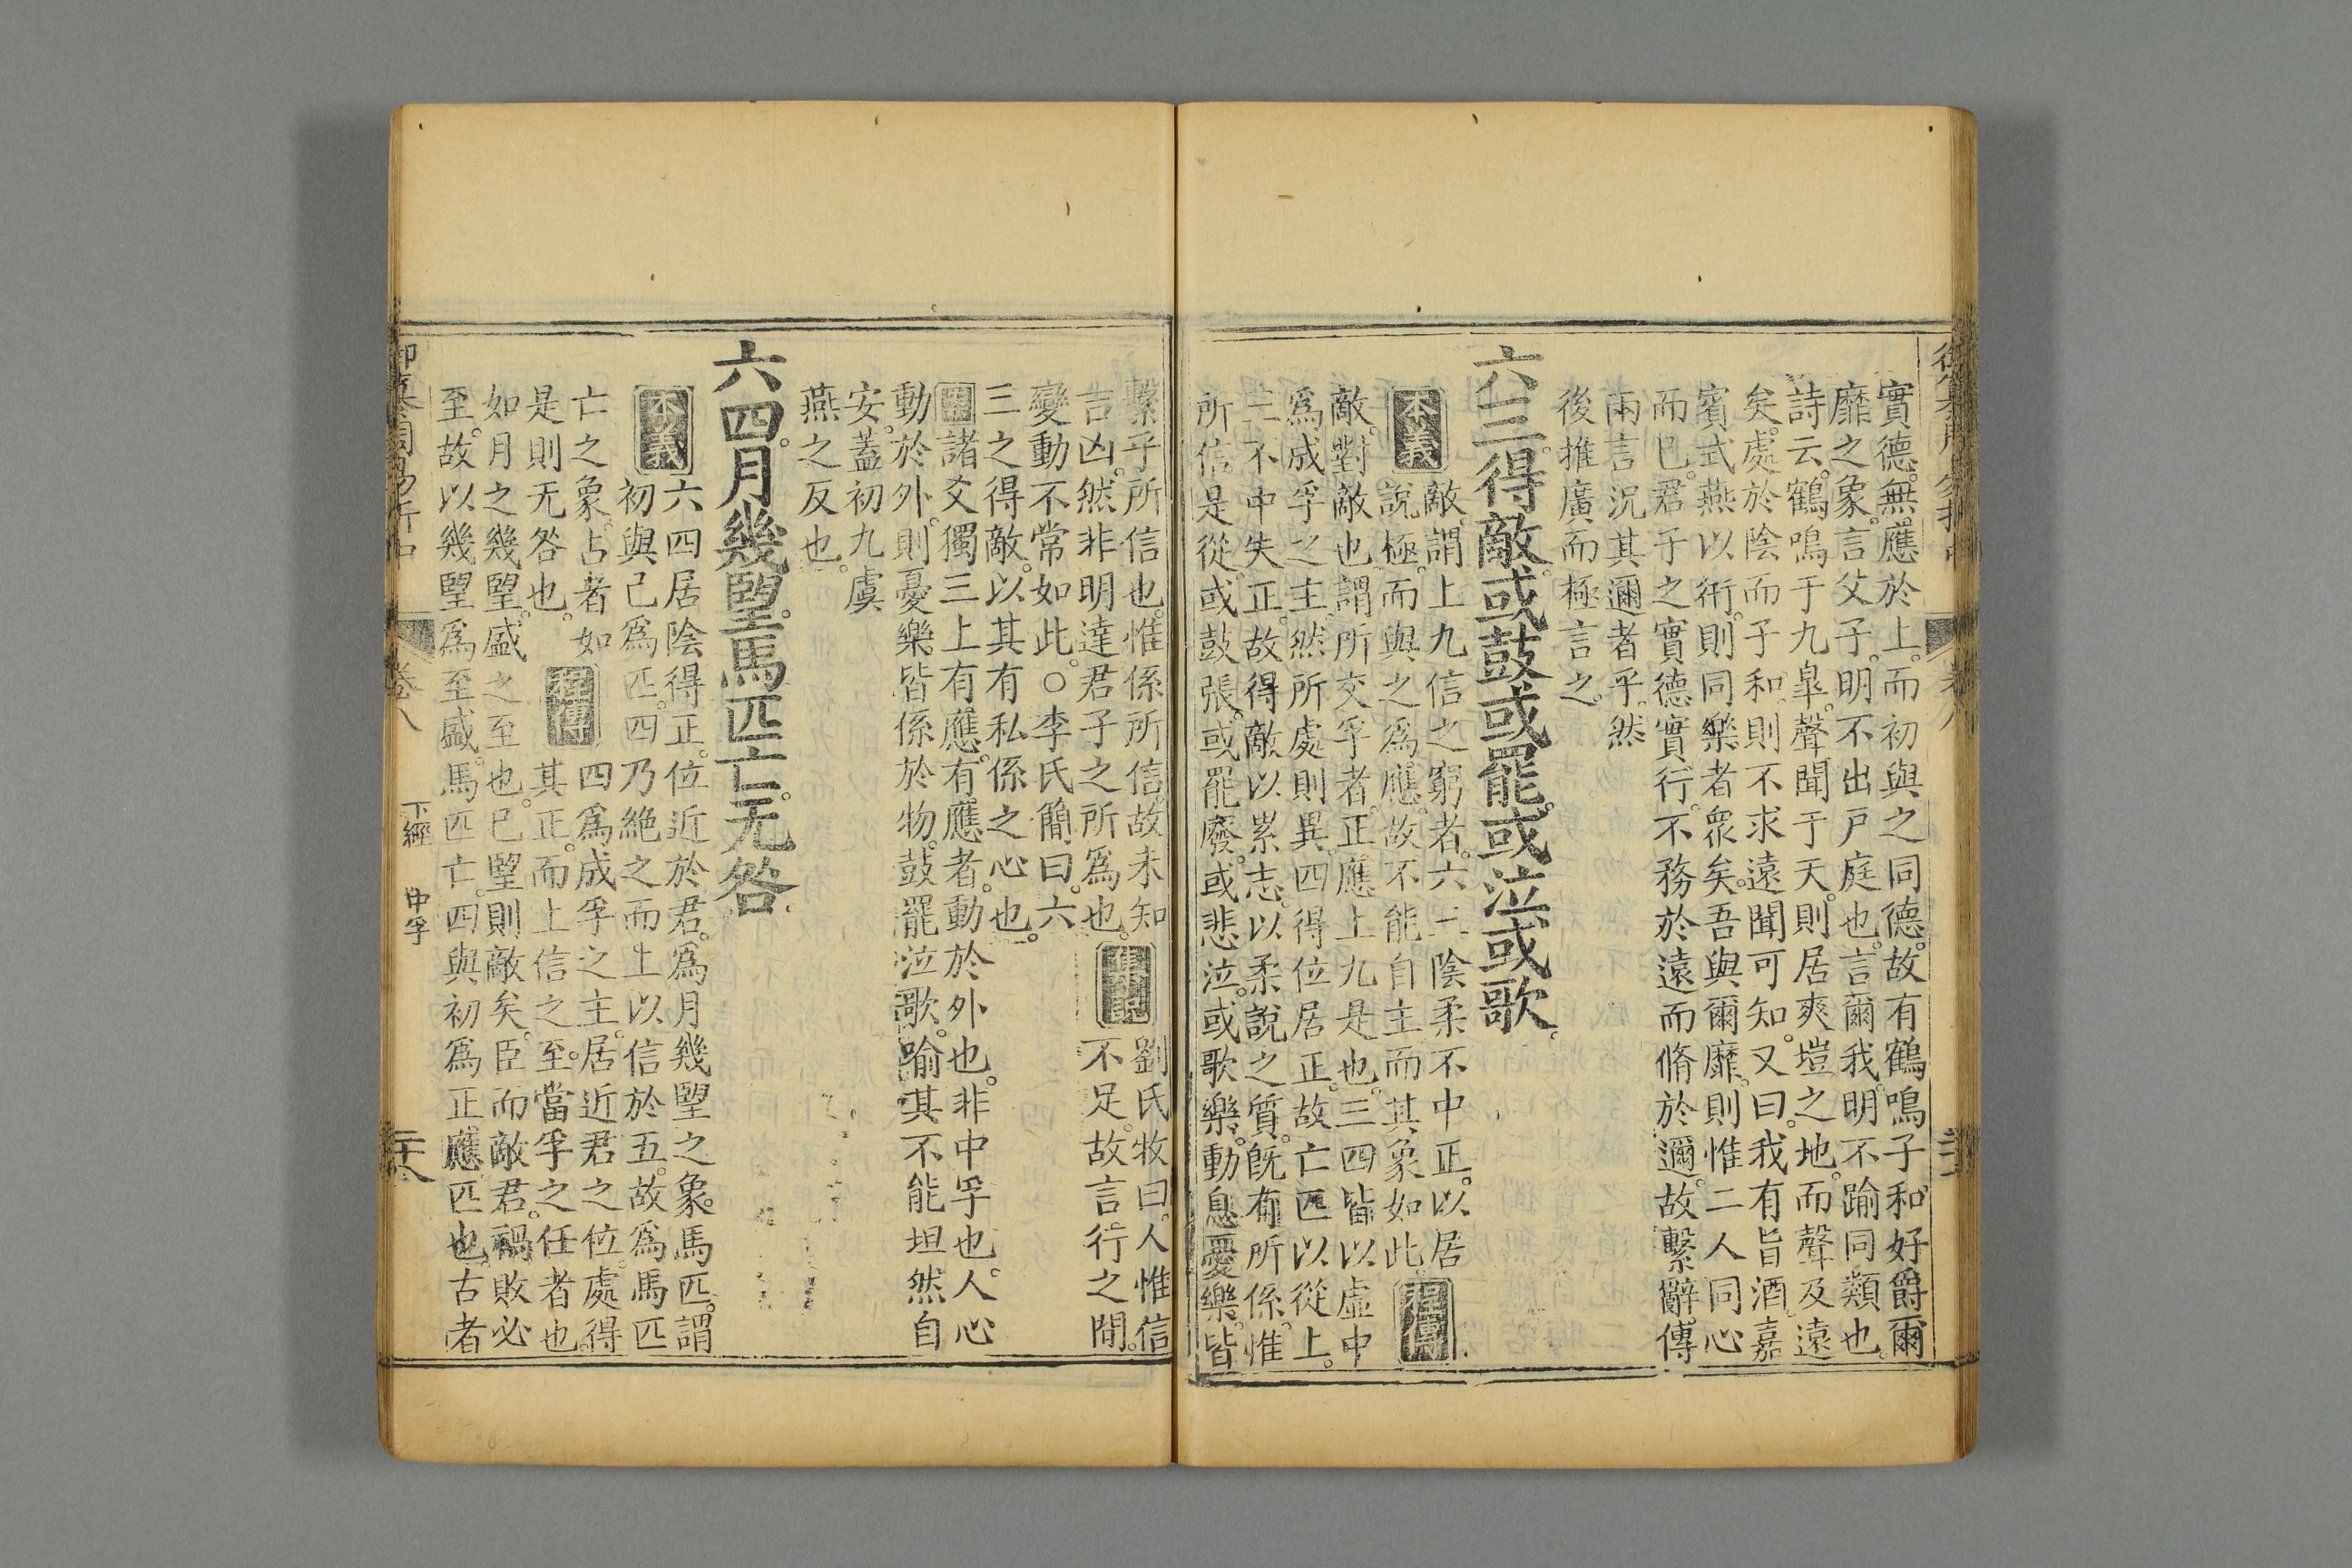 實德。無應於上。而初與之同德。故有鶴鳴子和。好爵爾
靡之象。言父子。明不出戸庭也。言爾我。明不踰同類也。
詩云。鶴鳴于九臯。聲聞于天。則居爽塏之地。而聲及遠
矣。處於陰而子和。則不求遠聞可知。又曰。我有旨酒。嘉
賓式燕以衎。則同樂者衆矣。吾與爾靡。則惟二人同心
而已。君子之實德實行。不務於遠而脩於邇。故繫辭。傳
兩言況其邇者乎。然
後推廣而極言之。
六三。得敵。或鼓或罷。或泣或歌。
本義 敵。謂上九信之窮者。六三陰柔不中正。以居
說極。而與之爲應。故不能自主而其象如此。 程傳
敵。對敵也。謂所交孚者。正應上九是也。三四皆以虛中
爲成孚之主。然所處則異。四得位居正。故亡匹以從上。
三不中失正。故得敵以累志。以柔說之質。旣有所係。惟
所信是從。或鼓張。或罷廢。或悲泣。或歌樂。動息憂樂。皆
繫乎所信也。惟係所信。故未知
吉凶。然非明達君子之所爲也。
劉氏牧曰。人惟信
不足。故言行之間。
變動不常如此。○李氏簡曰。六
三之得敵。以其有私係之心也。
諸爻獨三上有應。有應者。動於外也。非中孚也。人心
動於外。則憂樂皆係於物。鼓罷泣歌。踰其不能坦然自
安。蓋初九虞
燕之反也。
六四。月幾望。馬匹亡。无咎。
本義 六四居陰得正。位近於君。爲月幾望之象。馬匹。謂
初與己爲匹。四乃絶之而上以信於五。故爲馬匹
亡之象。占者如
是則无咎也。
程傳 四爲成孚之主。居近君之位。處得
其正。而上信之至。當孚之任者也。
如月之幾望。盛之至也。已望則敵矣。臣而敵君。禍敗必
至。故以幾望爲至盛。馬匹亡。四與初爲正應匹也。古者
卷八
下經
中孚
二十八